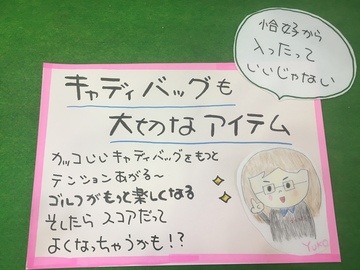 恰好から
入ったって
いいじゃない
キャディバッグも
大切なアイテム
カッコいいキャディバッグをもつと
テンションあがる〜
ゴルフがもっと楽しくなる
そしたらスコアだって
よくなっちゃうかも!?
YUKO